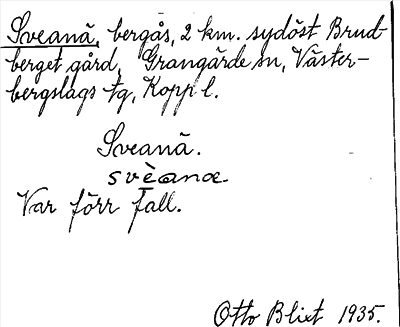 Sveanä, bergås, 2 km. sydöst Brud-
berget gård, Grangärde sn, Väster-
bergslags tg, Kopp l.
Sveanä.
svèanæ
Var förr fall.
Otto Blixt 1935.